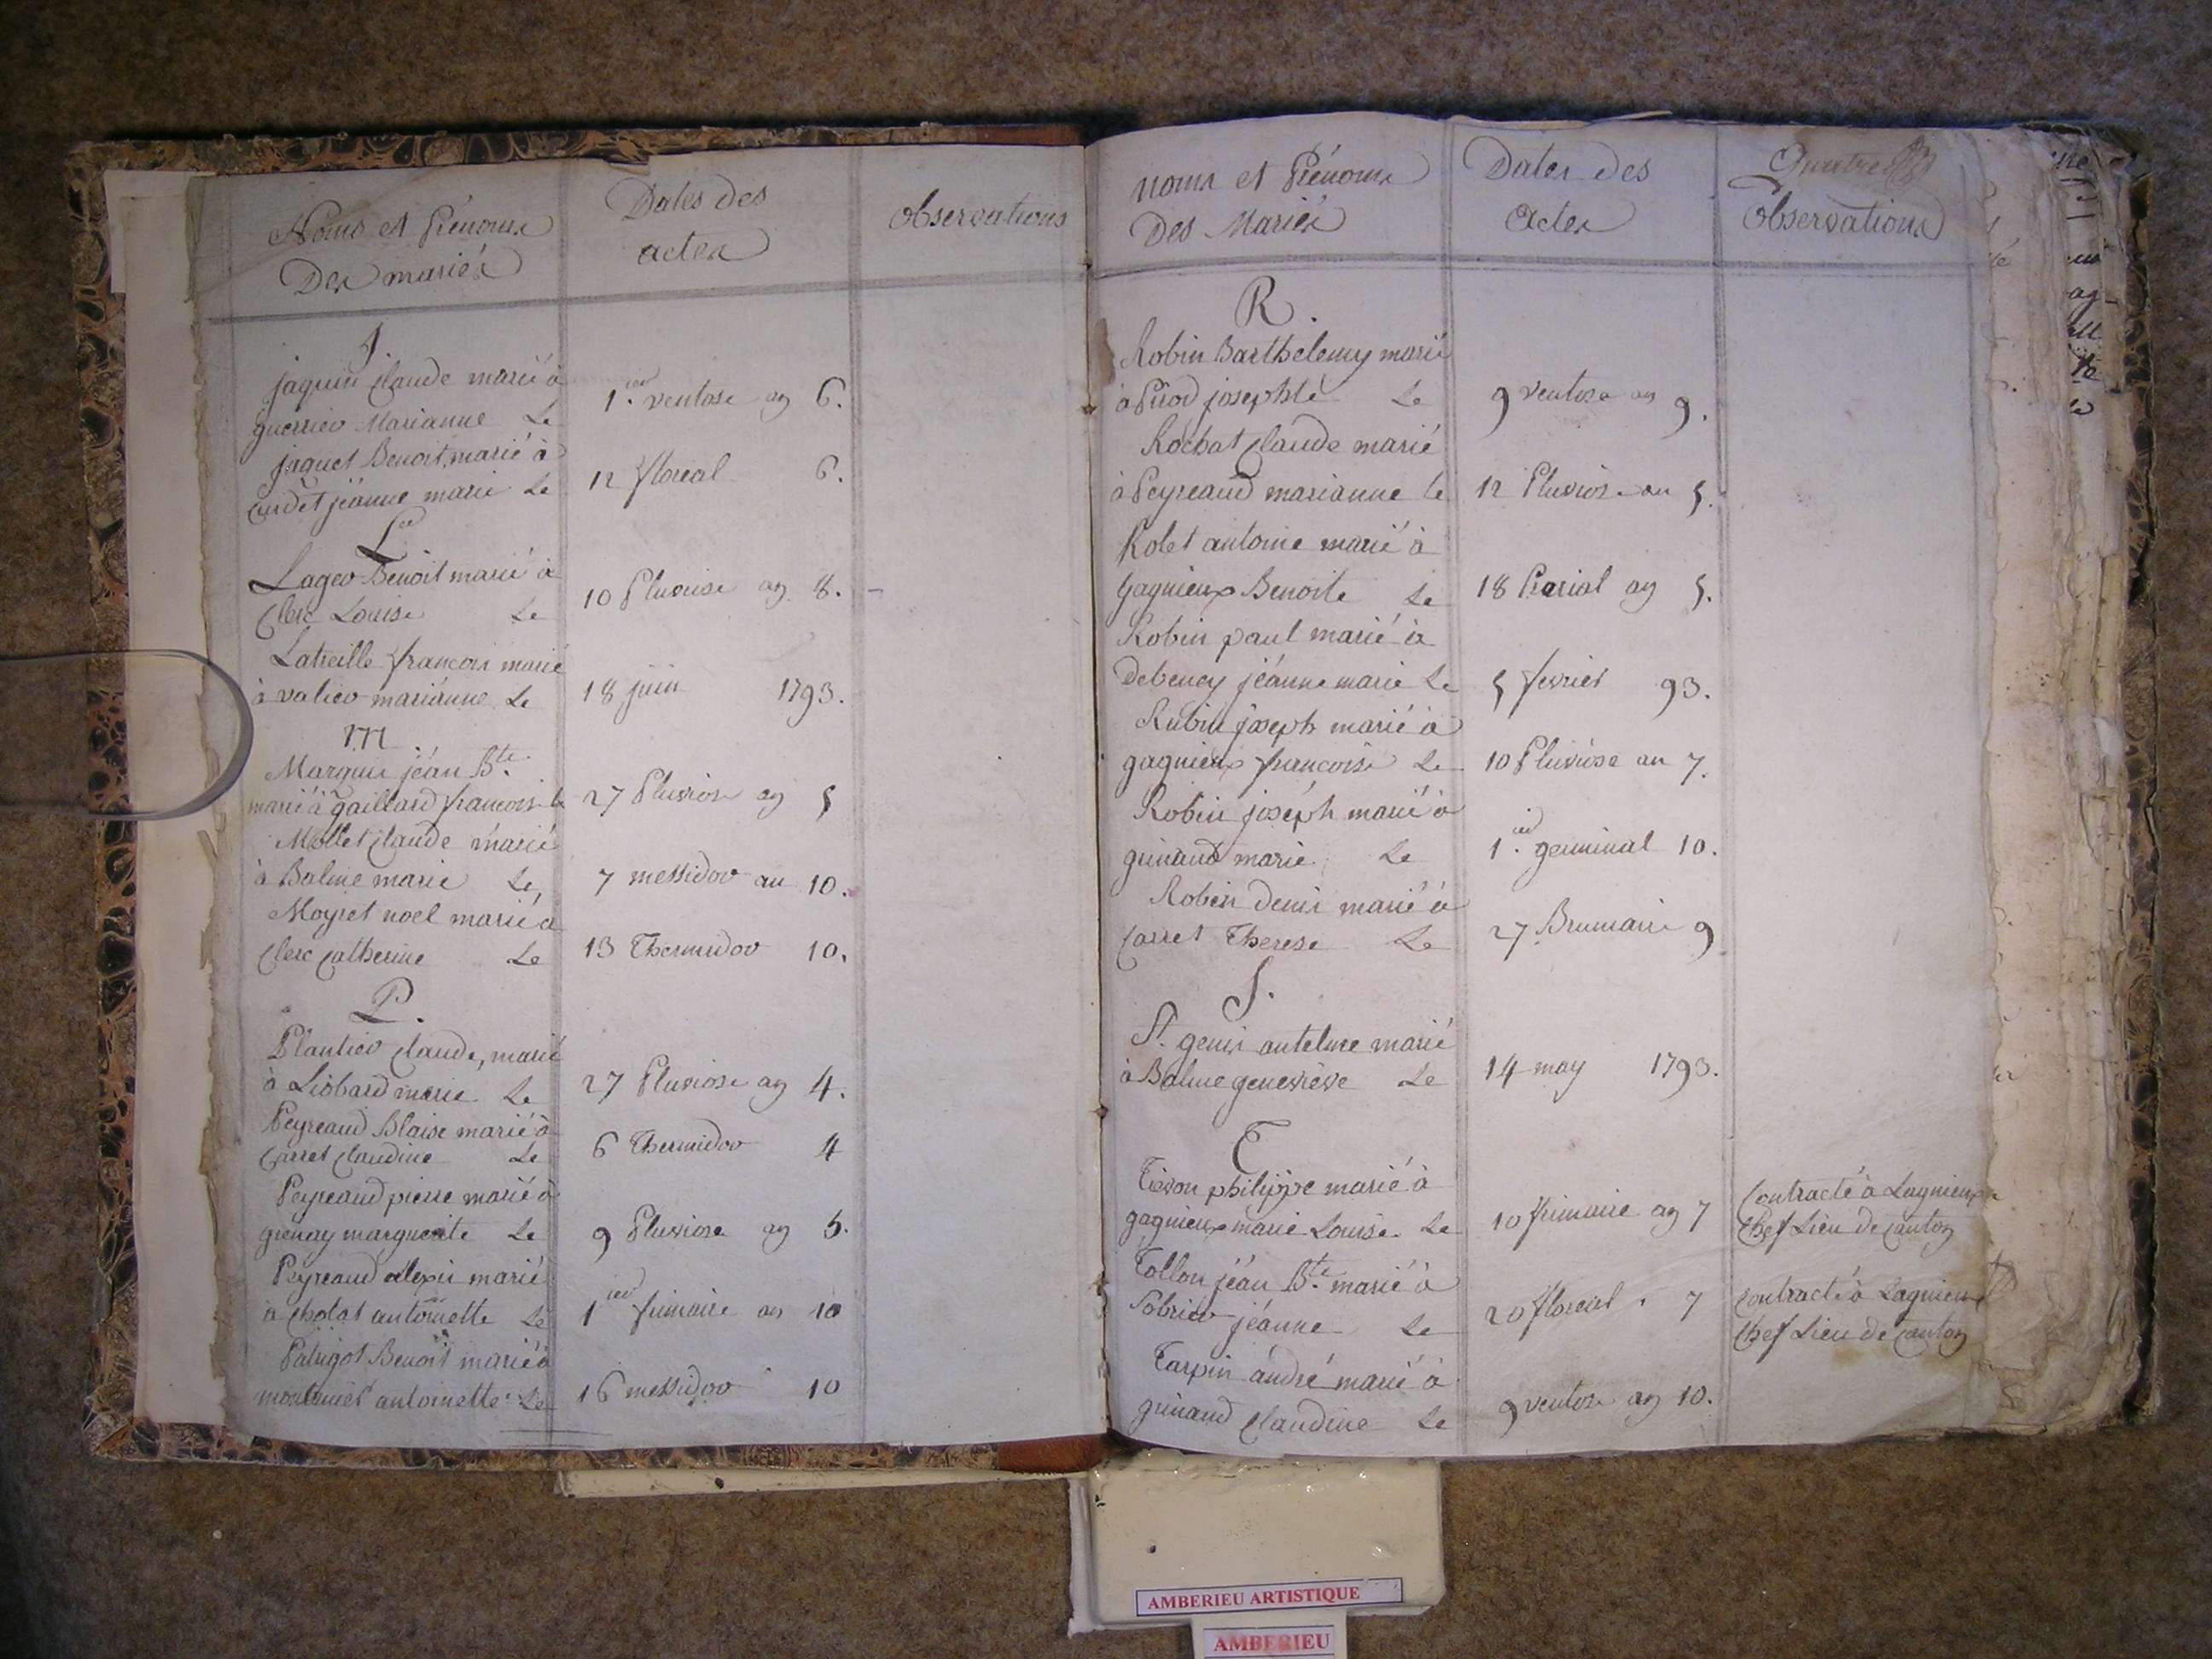 Noms et Prénoms
Des mariés
Dates des
actes
observations
J
jaquin Claude marié à
guerrier Marianne Le
1.ier ventose an 6.
jaquet Benoit marié à
Cudet jéanne marie Le
12 floreal 6.
L
Lager Benoit marié à
Clerc Louise Le
10 Pluviose an 8.
Latreille françois marié
à valier marianne Le
18 juin 1793.
M.
Marquis jéan Bte.
marié à gaillard françoise le
27 Pluviose an 5
Mollet Claude marié
à Balme marie Le
7 messidor an 10.
Moyret noel marié a
Clerc Catherine Le
13 Thermidor 10.
P.
Plantier Claude, marié
à Liobard marie Le
27 Pluviose an 4.
Peyreaud Blaise marié à
Carret Claudine Le
6 Thermidor 4
Peyreaud pierre marié à
grenay marguerite Le
9 Pluviose an 5.
Peyreaud alexis marié
à Cholat antoinette Le
1ier frimaire an 10
Patrigot Benoit marié à
antoinette Le
16 messidor 10
noms et Prénoms
Des Mariés
Dates des
Actes
Quatre
Observations
R.
Robin Barthelemy marié
à Pirod josephte Le
9 ventose an 9.
Rochat Claude marié
à Peyreaud marianne le
12 Pluviose an 5.
Rolet antoine marié à
gagnieux Benoite Le
18 Prarial an 5.
Robin paul marié à
Debeney jéanne marie Le
5 fevrier 93.
Rubin joseph marié à
gagnieux françoise Le
10 Pluviose an 7.
Robin joséph marié à
guinand marie Le
1.ier germinal 10.
Robin denis marié à
Carret Therese Le
27 Brumaire 9
S.
St. genis antelme marié
à Balme genevieve Le
14 may 1793.
T
Tison philippe marié à
gagnieux marie Louise Le
10 frimaire an 7
Contracté à Lagnieux
Chef Lieu de Canton
Tollon jéan Bte. marié à
jéanne Le
20 floreal 7
Contracté à Lagnieux
Chef Lieu de Canton
Tarpin andré marié à
guinand Claudine Le
9 ventose an 10.
AMBERIEU ARTISTIQUE
AMBERIEU